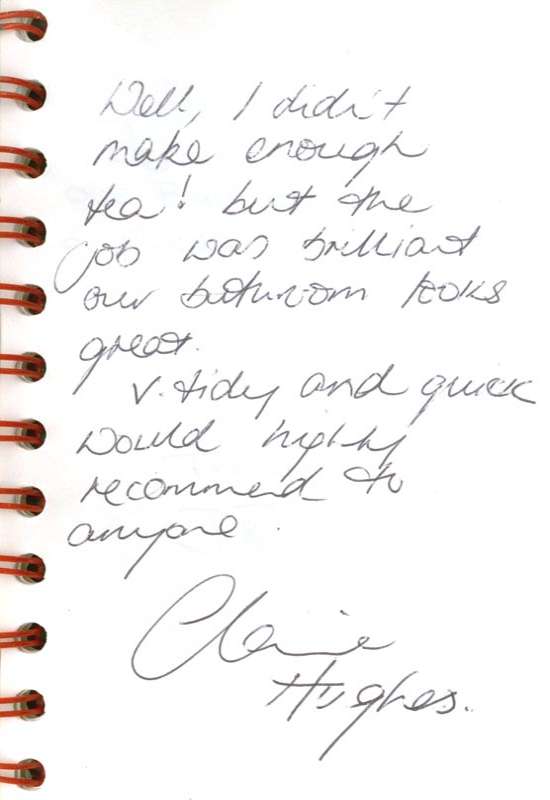 Well, I didn't
make enough
tea! but the
job was brilliant
our bathroom looks
great.
v. tidy and quick
would highly
recommend to
anyone.
Claire
Hughes.